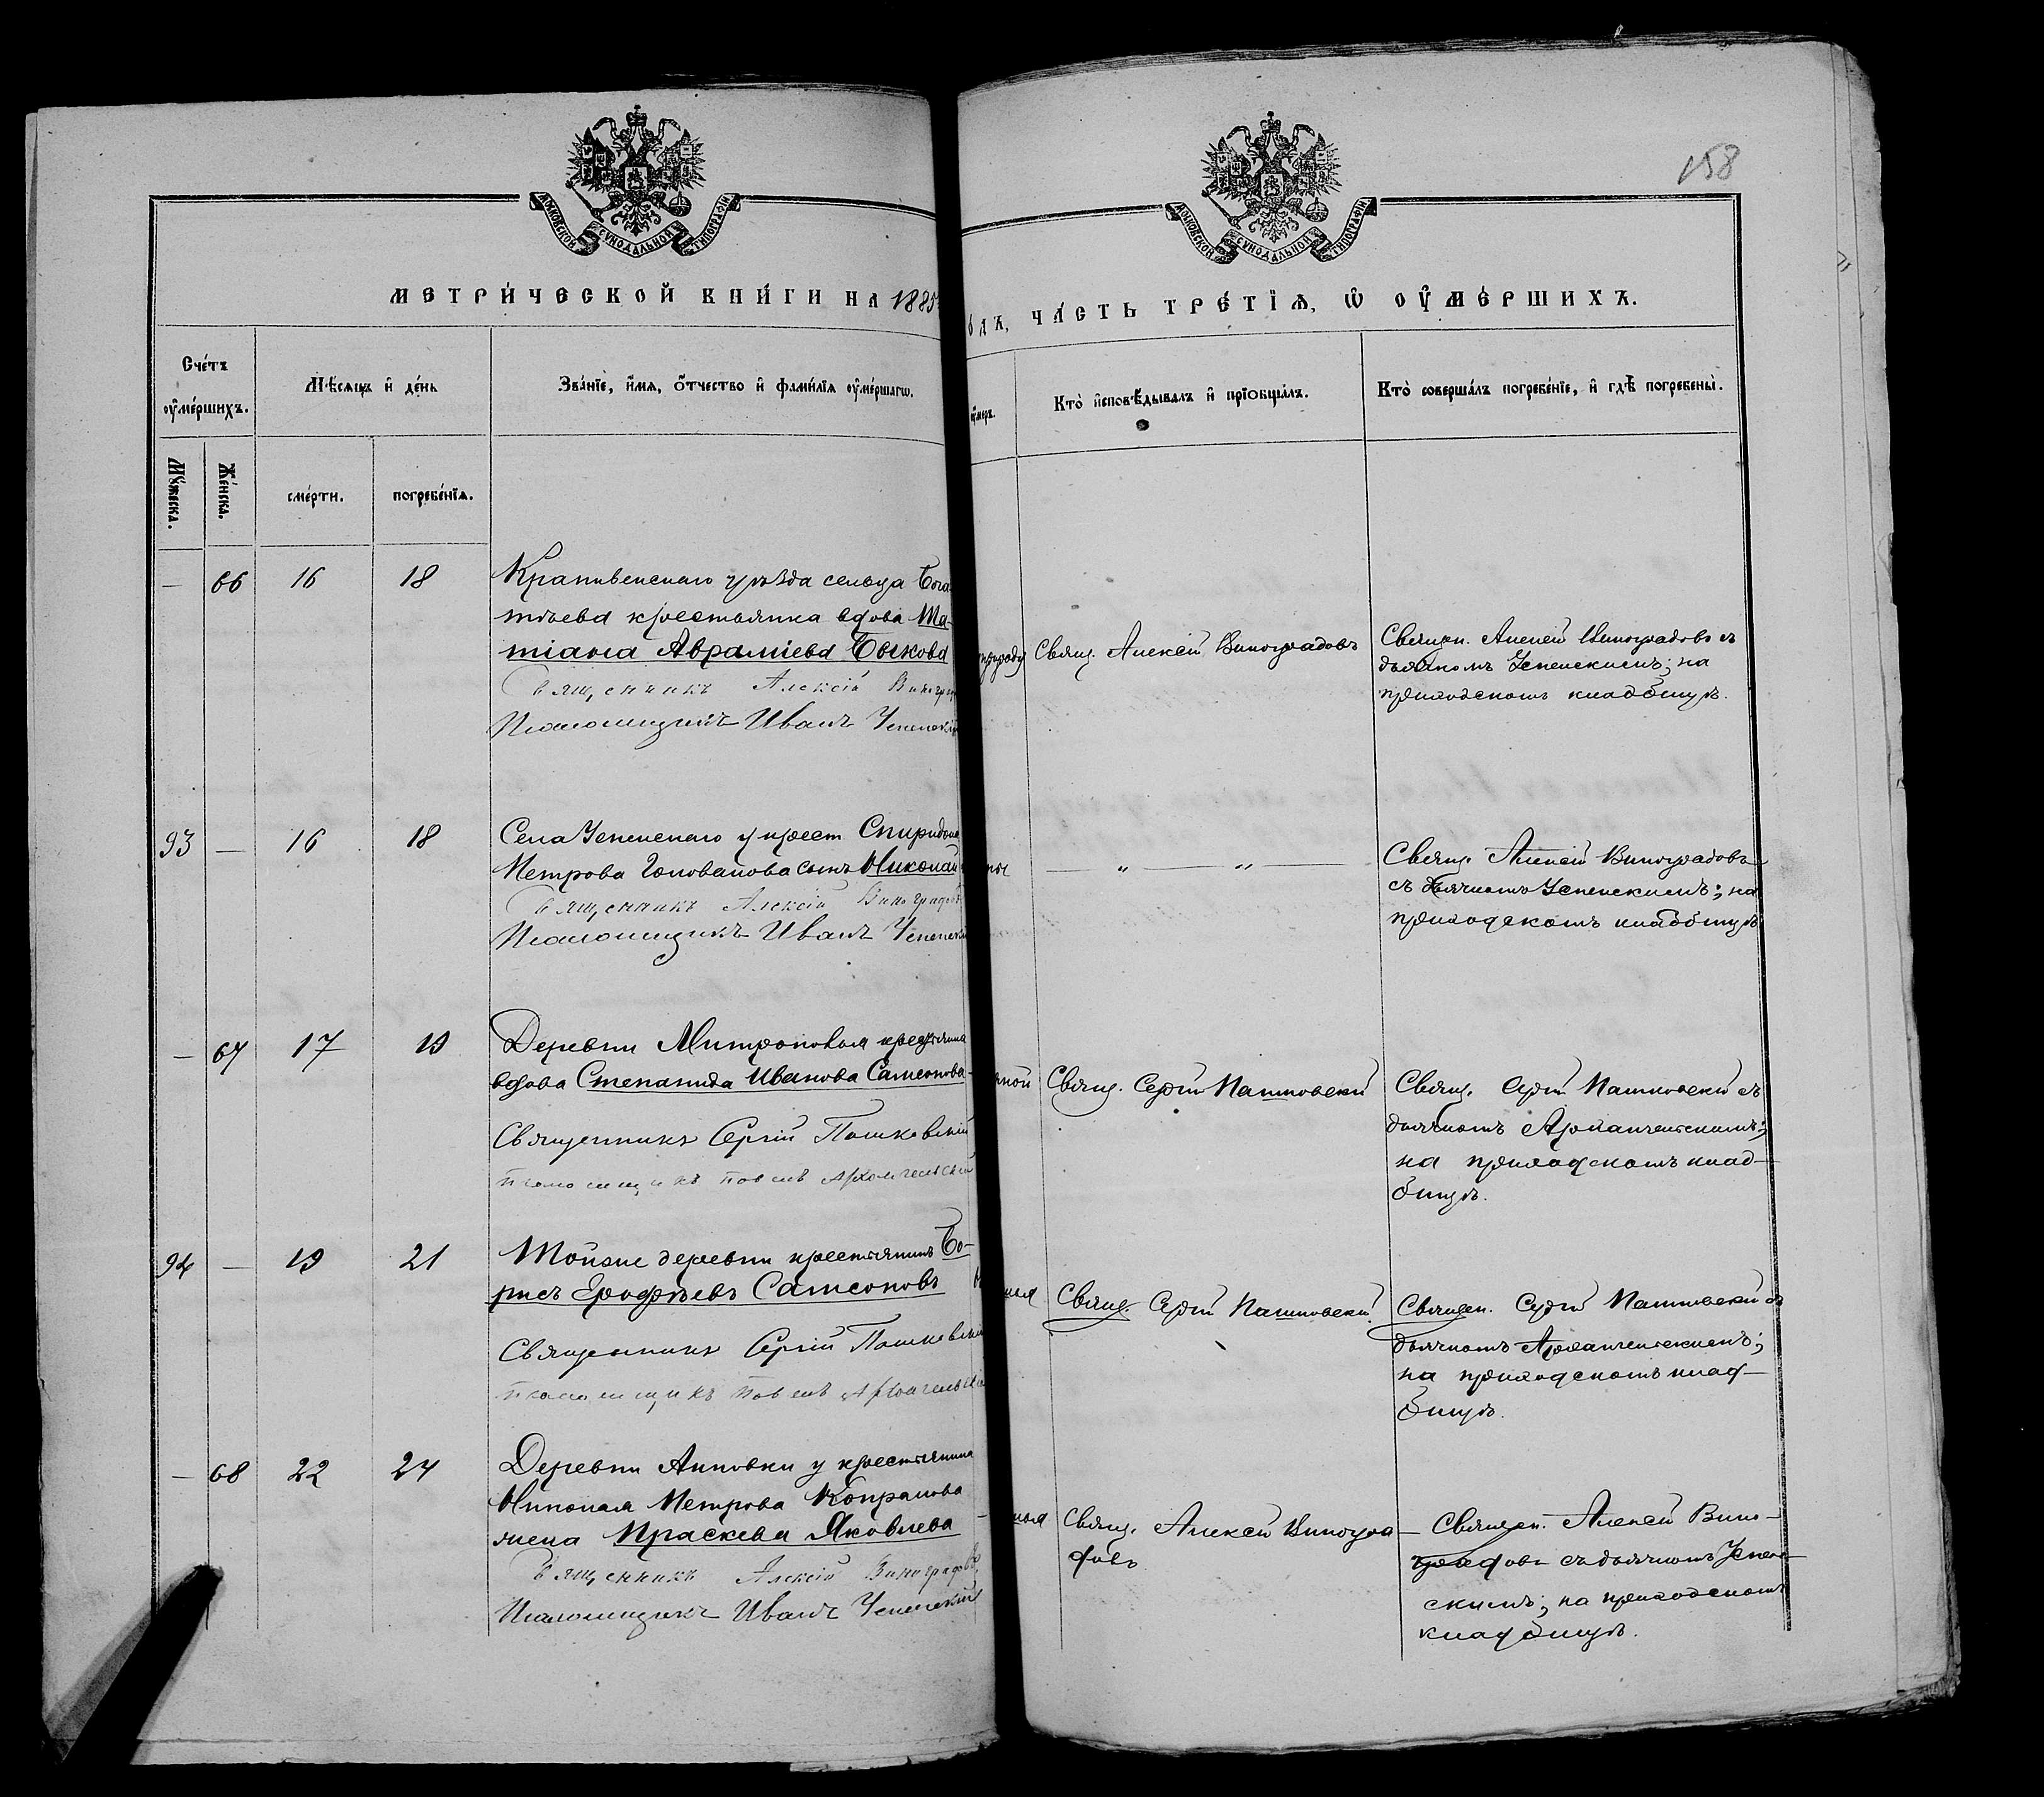 158
МОСКОВСКОЙ СѴНОДАЛЬНОЙ ТИПОГРАФІИ
МОСКОВСКОЙ СѴНОДАЛЬНОЙ ТИПОГРАФІИ
МЕТРИ́ЧЕСКОЙ КНИ́ГИ НА 1885
ЧА́СТЬ ТРЕ́ТІѦ, Ѡ ОУМЕ́РШИХЪ.
Сче́тъ оумершихъ.
Мѣсяцъ и де́нь
Зва́нїе, имя, отчество и фами́лїя оуме́ршагѡ.
Кто̀ исповѣ́дывалъ и прїобща́лъ.
Кто̀ соверша́лъ погребе́нїе, и гдѣ̀ погребены̀.
Мꙋжеска.
Же́нска.
сме́рти.
погребе́нїѧ.
— 66 16 18
Крапивенскаго уѣзда сельца Бога
тѣева крестьянка вдова Та-
тіана Авраміева Быкова
Священникъ Алексій Виногр
Псаломщикъ Иванъ Успенскій
Свящ. Алексій Виноградовъ
Священ. Алексій Виноградовъ съ
дьячкомъ Успенскимъ; на
приходскомъ кладбищѣ.
93 — 16 18
Села Успенскаго у крест Спиридона
Петрова Голованова сынъ Николай
Священникъ Алексій Виноградовъ
Псаломщикъ Иванъ Успенскі
— " — " —
Свящ. Алексій Виноградовъ
съ дьячкомъ Успенскимъ; на
приходскомъ кладбищѣ
— 67 17 19
Деревни Митрополья крестьянка
вдова Степанида Иванова Самсонова
Священникъ Сергій Пашковскій
Псаломщикъ Павелъ Архангельскій
Свящ. Сергій Пашковскій
Свящ. Сергій Пашковскій съ
дьячкомъ Архангельскимъ;
на приходскомъ клад-
бищѣ.
94 — 19 21
Тойже деревни крестьянинъ Бо-
рисъ Ерофѣевъ Самсоновъ
Священникъ Сергій Пашковскій
Псаломщикъ Павелъ Архангельск
Свящ. Сергій Пашковскій.
Священ. Сергій Пашковскій съ
дьячкомъ Архангельскимъ;
на приходскомъ клад-
бищѣ.
— 68 22 24
Деревни Анновки у крестьянина
Николая Петрова Копралова
жена Праскева Яковлева
Священникъ Алексій Виноградовъ,
Псаломщикъ Иванъ Успенскій
Свящ. Алексій Виногра-
довъ
Священ. Алексій Вино-
градовъ съ дьячкомъ Успен-
скимъ; на приходскомъ
кладбищѣ.